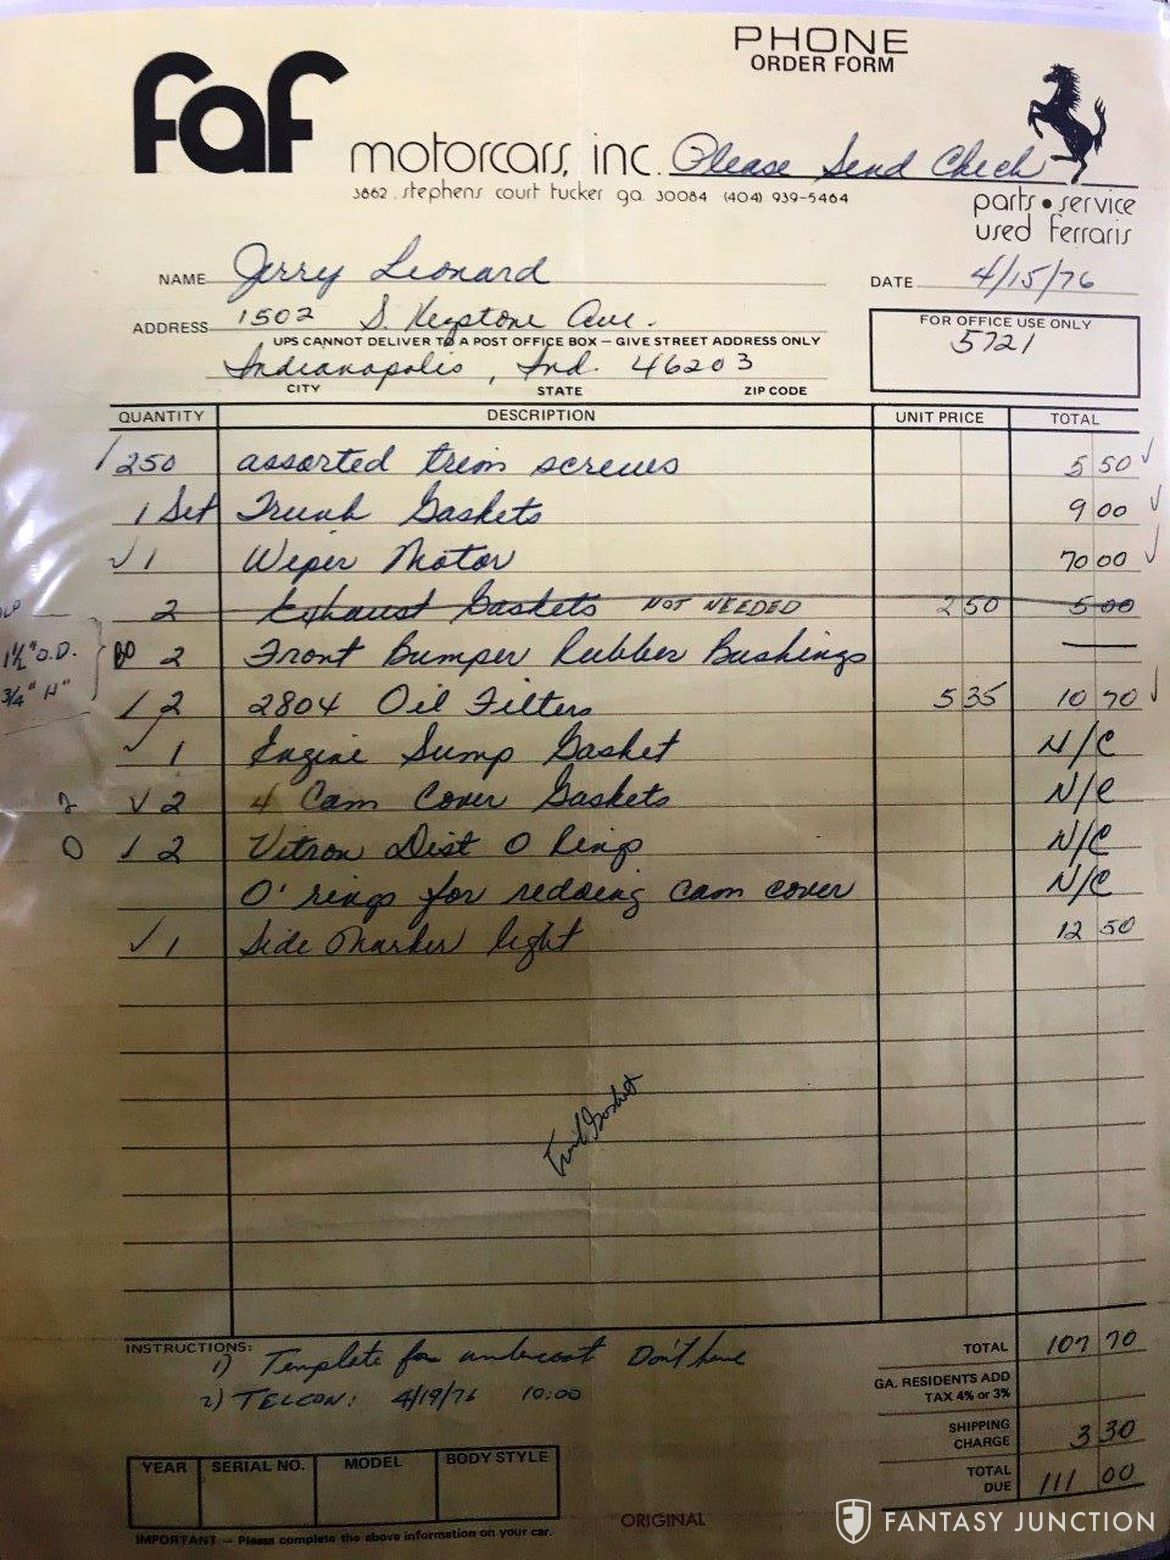 PHONE
ORDER FORM
faf motorcars, inc. Please Send Check
3862 . stephens court tucker ga. 30084 (404) 939-5464
parts • service
used ferraris
NAME Jerry Leonard DATE 4/15/76
ADDRESS 1502 S. Keystone Ave.
UPS CANNOT DELIVER TO A POST OFFICE BOX — GIVE STREET ADDRESS ONLY
FOR OFFICE USE ONLY
5721
Indianapolis, Ind. 46203
CITY STATE ZIP CODE
QUANTITY DESCRIPTION UNIT PRICE TOTAL
250 assorted trim screws 5 50 ✓
1 Set Trunk Gaskets 9 00 ✓
✓ 1 Wiper Motor 70 00 ✓
2 Exhaust Gaskets NOT NEEDED 2 50 5 00
1½" O.D. BO 2 Front Bumper Rubber Bushings —
3/4" H"
✓ 2 2804 Oil Filters 5 35 10 70 ✓
✓ 1 Engine Sump Gasket N/C
2 ✓ 2 4 Cam Cover Gaskets N/C
0 ✓ 2 Vitron Dist O Rings N/C
O' rings for redoing cam cover N/C
✓ 1 Side Marker light 12 50
INSTRUCTIONS:
1) Template for undercoat Don't have
2) TELCON: 4/19/76 10:00
TOTAL 107 70
GA. RESIDENTS ADD
TAX 4% or 3%
SHIPPING
CHARGE 3 30
TOTAL
DUE 111 00
YEAR SERIAL NO. MODEL BODY STYLE
IMPORTANT — Please complete the above information on your car.
ORIGINAL
FANTASY JUNCTION